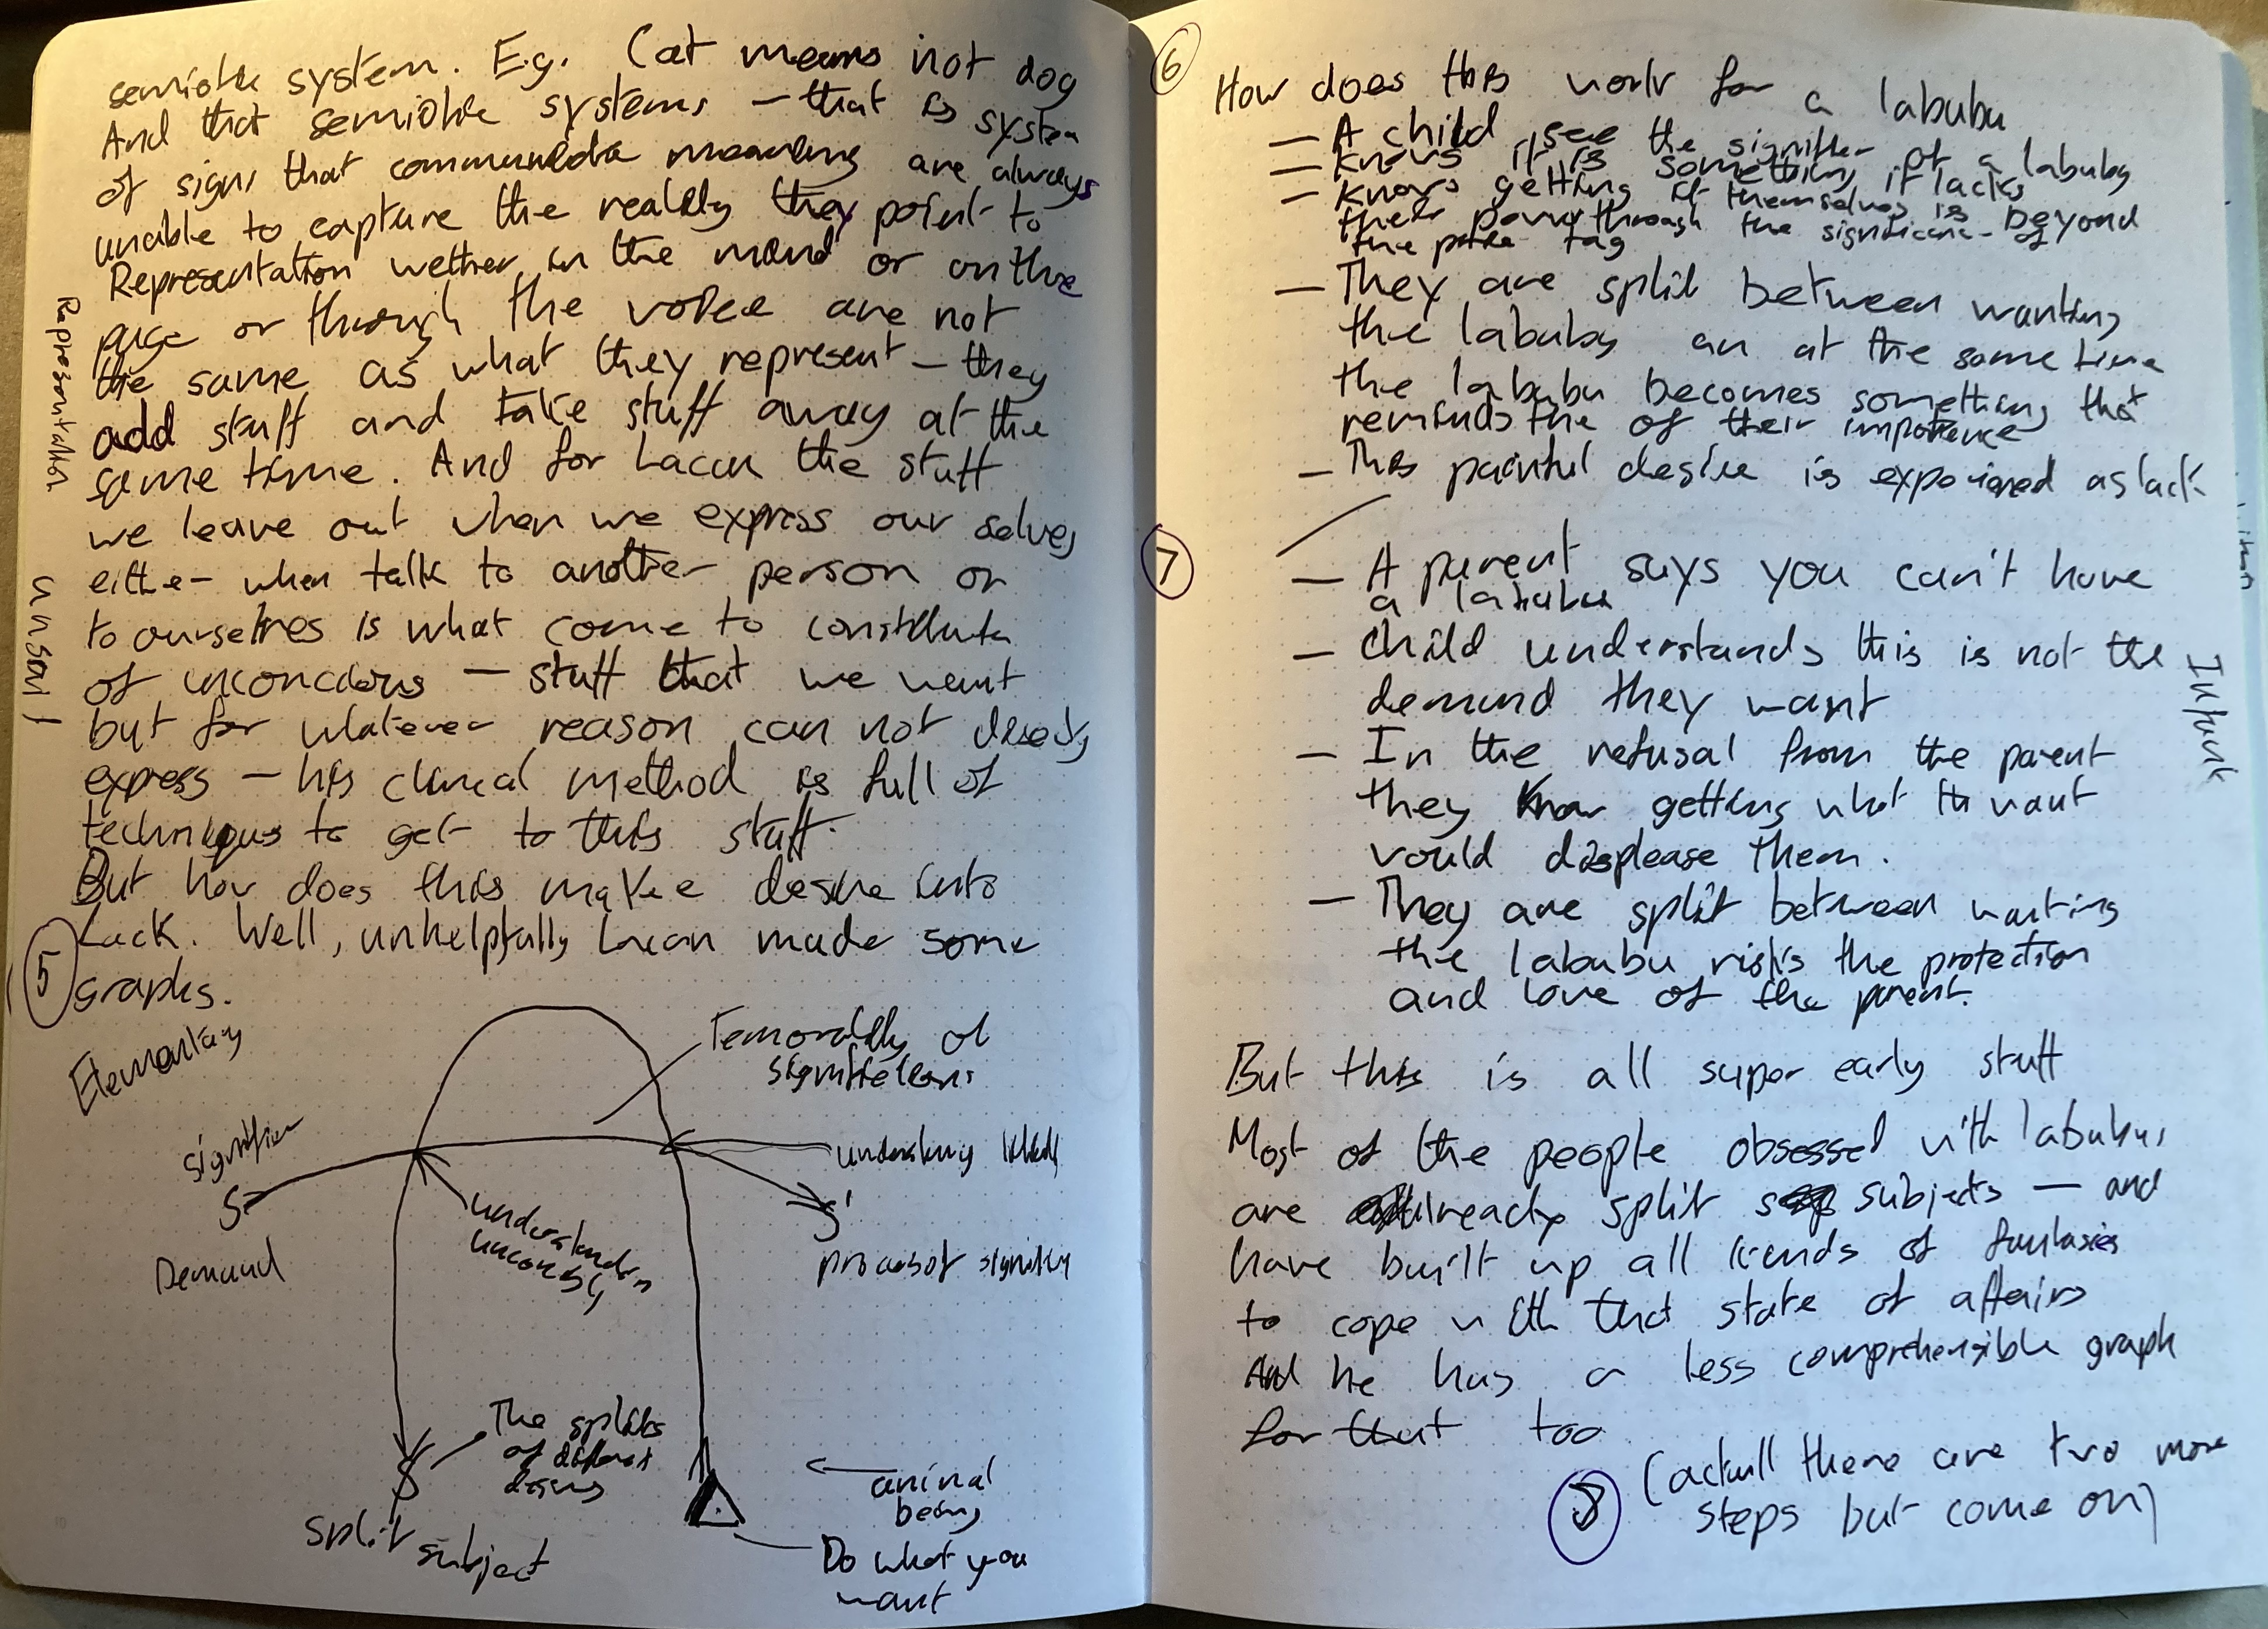 semiotic system. E.g. Cat means not dog
And that semiotic systems – that is system
of signs that communicate meaning are always
unable to capture the reality they point to
Representation wether in the mind or on the
page or through the voice are not
the same as what they represent – they
add stuff and take stuff away at the
same time. And for Lacan the stuff
we leave out when we express our selves
either when talk to another person or
to ourselves is what come to constitute
of unconcious – stuff that we want
but for whatever reason can not directly
express – his clinical method is full of
techniques to get to this stuff.
But how does this make desire into
Lack. Well, unhelpfully Lacan made some
5
graphs.
Representation
Elementary
Temorality of
signifiers
signifier
S
Demand
understanding
S'
process of
The splits
of different
desires
$
split subject
animal
being
Do what you
want
6
How does this work for a labubu
– A child see the signifier of a labubu
– knows it is something it lacks
– knows getting it themselves is beyond
their power through the significance of
the price tag
– They are split between wanting
the labubu an at the same time
the labubu becomes something that
reminds the of their impotence
– This painful desire is experienced as lack
7
– A parent says you can't have
a labubu
– child understands this is not the
demand they want
– In the refusal from the parent
they know getting what th want
would displease them.
– They are split between wanting
the labubu risks the protection
and love of the parent.
But this is all super early stuff
Most of the people obsessed with labubus
are already split subjects – and
have built up all kinds of fantasies
to cope with that state of affairs
And he has a less comprehensible graph
for that too
8
(actull there are two more
steps but come on)